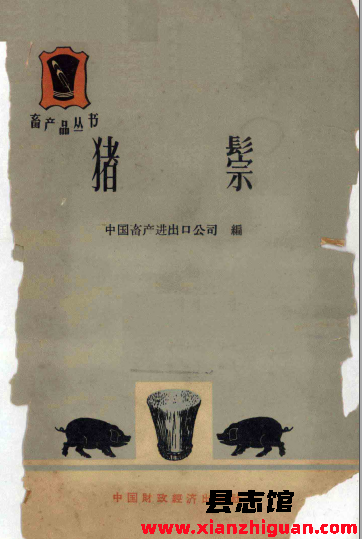 畜产品丛书
猪鬃
中国畜产进出口公司 編
中国財政経済出
县志馆
www.xianzhiguan.com